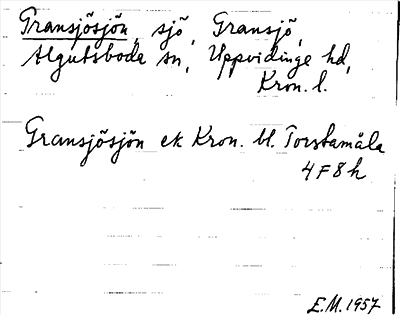 Gransjösjön, sjö, Gransjö,
Algutsboda sn, Uppvidinge hd,
Kron. l.
Gransjösjön ek Kron. bl. Torstamåla
4F8h
E.M. 1957